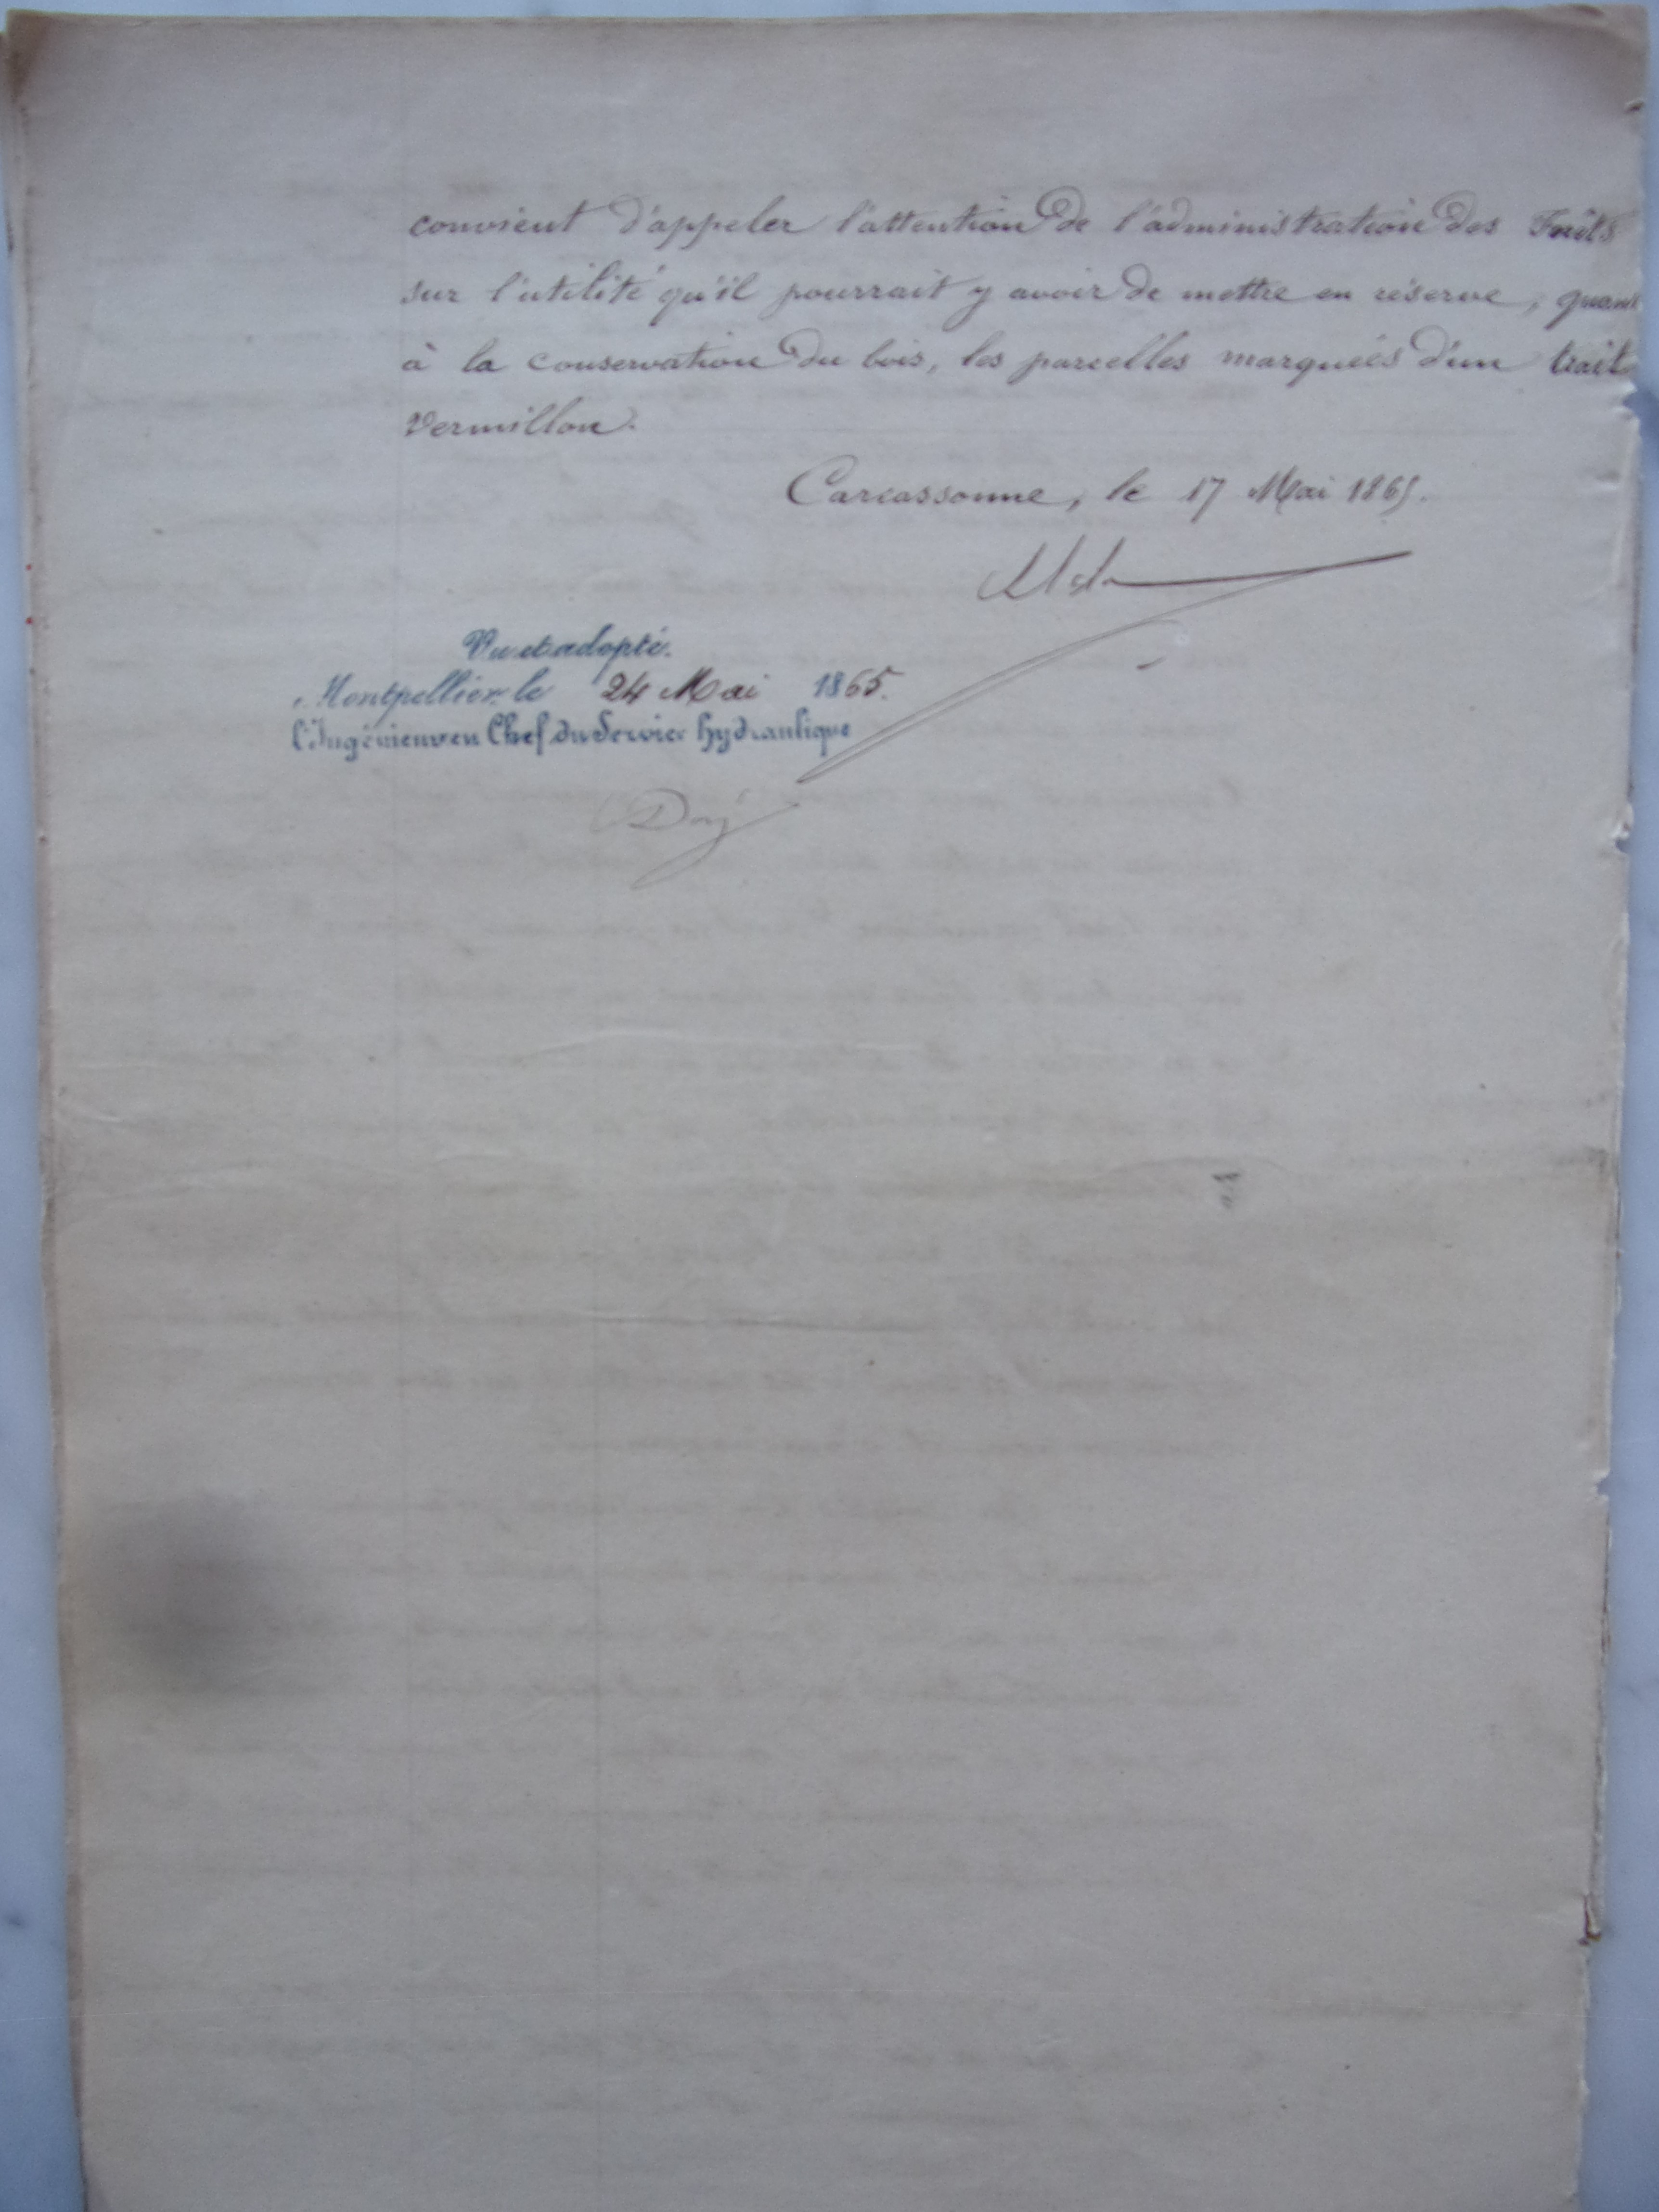 convient d'appeler l'attention de l'administration des Forêts
sur l'utilité qu'il pourrait y avoir de mettre en réserve, quant
à la conservation du bois, les parcelles marquées d'un trait
vermillon.
Carcassonne, le 17 Mai 1865.
Vu et adopté.
Montpellier le 24 Mai 1865.
l'Ingénieur en Chef du Service hydraulique